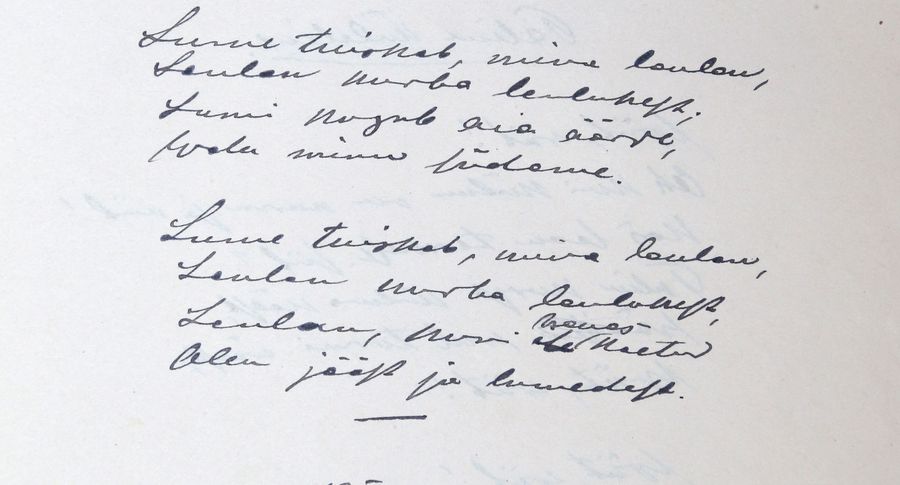 Lume tuiskab, mina laulan,
Laulan kurba laulukest.
Lumi kogub aia äärde,
Walu minu südame.
Lume tuiskab, mina laulan,
Laulan kurba laulukest,
Laulan, kuni
Olen jääst ja lumedest.